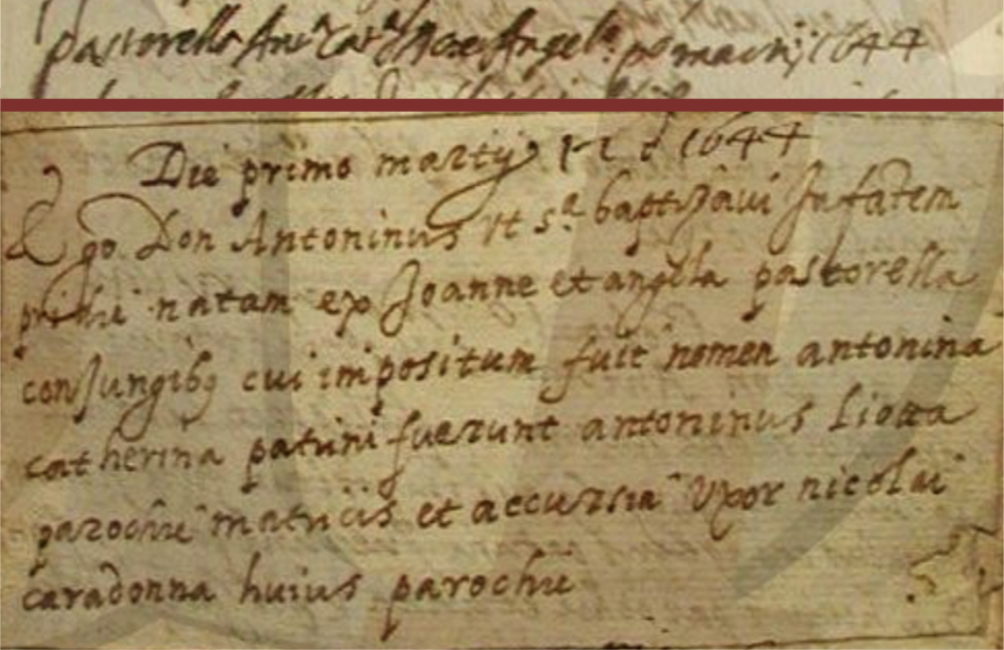 pastorella Ant.ª Cat.ª Joe Angela p.º martij 1644
Die primo martij 1644
Ego Don Antoninus ut s.ª baptizavi Infatem
natam ex Joanne et angela pastorella
conJungibq cui impositum fuit nomen antonina
catherina patrini fuerunt antoninus liotta
parochie matricis et accursia uxor nicolai
caradonna huius parochie